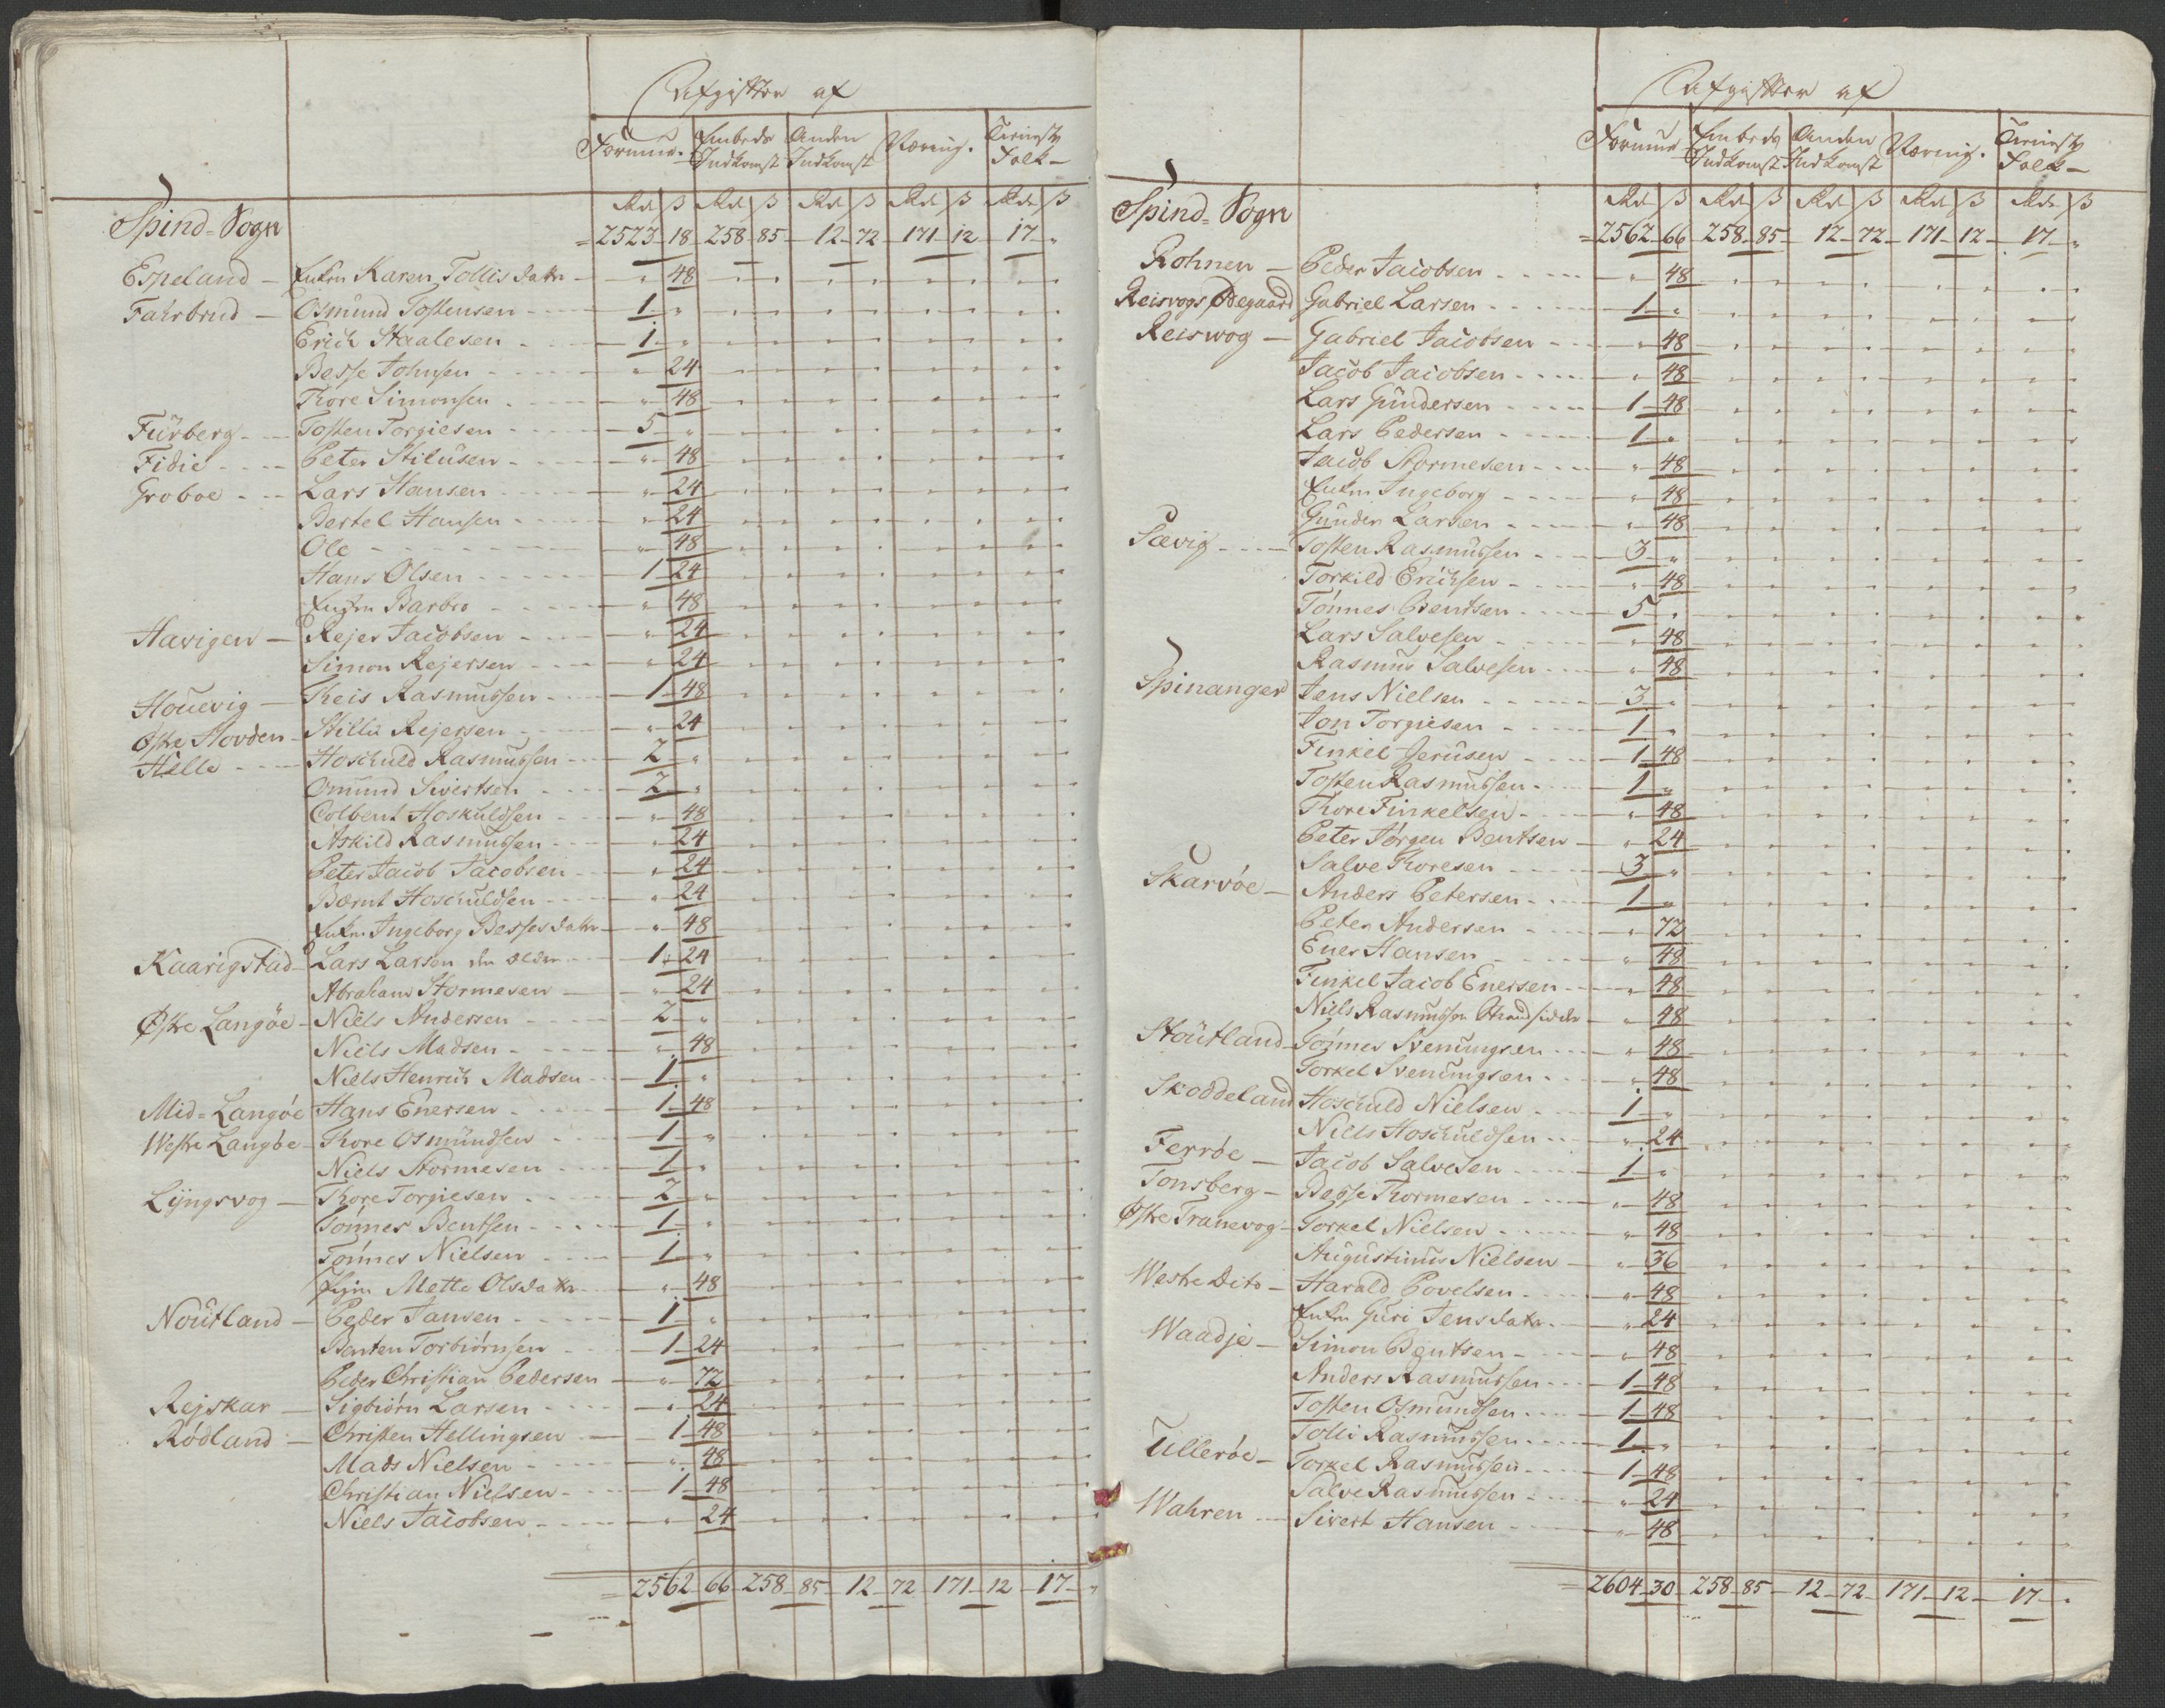 Afgifter af
Formue. Embeds Indkomst Anden Indkomst Næring. Tieniste Folk
Rd ß Rd ß Rd ß Rd ß Rd ß
Spind-Sogn
= 2523 18 258 85 12 72 171 12 17 "
Espeland — Enken Karen Tollisdatter " 48
Fahrbrud — Osmund Tostensen 1 "
Erich Staalesen 1 "
Besse Johnsen " 24
Thore Simonsen " 48
Fürberg — Tosten Torgiesen 5 "
Fidie — Peter Stilusen " 48
Groboe — Lars Hansen " 24
Bertel Hansen " 24
Ole " 48
Hans Olsen 1 24
Enken Barbro " 48
Havigen — Rejer Jacobsen " 24
Simon Rejersen " 24
Houevig — Theis Rasmussen 1 48
Østre Hovden — Stillu Rejersen " 24
Helle — Hoschuld Rasmussen 2 "
Omund Sivertsen 2 "
Colbent Hoskuldsen " 48
Askild Rasmussen " 24
Peter Jacob Jacobsen " 24
Bernt Hoschuldsen " 24
Enken Ingeborg Bessesdatter " 48
Kaarigstad — Lars Larsen den Elder 1 24
Abraham Stormesen " 24
Østre Langøe — Niels Andersen 2 "
Niels Madsen " 48
Niels Henrich Madsen 1 "
Mid-Langøe Hans Enersen 1 48
Westre Langøe — Thore Osmundsen 1 "
Niels Stormesen 1 "
Lÿngsvog — Thore Torgiesen 2 "
Tönnes Bentsen 1 "
Tönnes Nielsen 1 "
Mette Olsdatter " 48
Noutland — Peder Jansen 1 "
Benten Torbiørnsen 1 24
Peder Christian Pedersen " 72
Rejskar — Sigbiørn Larsen " 24
Rødland — Christen Hellingsen 1 48
Mads Nielsen " 48
Christian Nielsen 1 48
Niels Jacobsen " 24
= 2562 66 258 85 12 72 171 12 17 "
Afgifter af
Formue Embeds Indkomst Anden Indkomst Næring. Tieniste Folk
Rd ß Rd ß Rd ß Rd ß Rd ß
Spind-Sogn
= 2562 66 258 85 12 72 171 12 17 "
Rohnen — Peder Jacobsen " 48
Reisvogs Ødegaard Gabriel Larsen 1 "
Reiswog — Gabriel Jacobsen " 48
Jacob Jacobsen " 48
Lars Gundersen 1 48
Lars Pedersen 1 "
Jacob Stormesen " 48
Enken Ingeborg " 48
Gunder Larsen " 48
Sævig — Tosten Rasmussen 3 "
Torkild Erichsen " 48
Tönnes Bentsen 5 "
Lars Salvesen " 48
Rasmus Salvesen " 48
Spinanger Jens Nielsen 3 "
Jon Torgiesen 1 "
Finkel Jerusen 1 48
Tosten Rasmussen 1 "
Thore Finkelsen " 48
Peter Jørgen Bentsen " 24
Salve Thoresen 3 "
Skarvøe — Anders Petersen 1 "
Peter Andersen " 72
Ener Hansen " 48
Finkel Jacob Enersen " 48
Niels Rasmussen Strandsidder " 48
Stoutland — Tönnes Svenungsen " 48
Torkel Svenungsen " 48
Skoddeland Hoschuld Nielsen 1 "
Niels Hoschuldsen " 24
Ferrøe — Jacob Salvesen 1 "
Tonsberg — Besse Thormesen " 48
Østre Tranevog — Torkel Nielsen " 48
Augustinus Nielsen " 36
Westre Dito — Harald Povelsen " 48
Enken Guri Jensdatter " 24
Waadje — Simon Bentsen " 48
Anders Rasmussen 1 48
Tosten Osmundsen 1 48
Tolli Rasmussen 1 "
Ullerøe — Torkel Rasmussen 1 48
Salve Rasmussen " 24
Wahren — Sivert Hansen " 48
= 2604 30 258 85 12 72 171 12 17 "